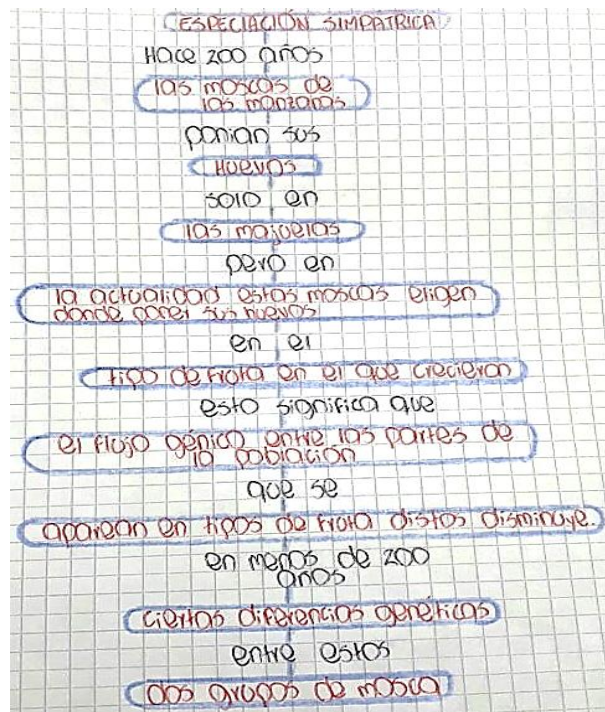 ESPECIACIÓN SIMPATRICA
Hace 200 años
las moscas de
las manzanas
ponian sus
Huevos
solo en
las majuelas
pero en
la actualidad estas moscas eligen
donde poner sus huevos
en el
tipo de fruta en el que crecieron
esto significa que
el flujo génico entre las partes de
la población
que se
aparean en tipos de fruta distos disminuye.
en menos de 200
años
ciertas diferencias genéticas
entre estos
dos grupos de mosca